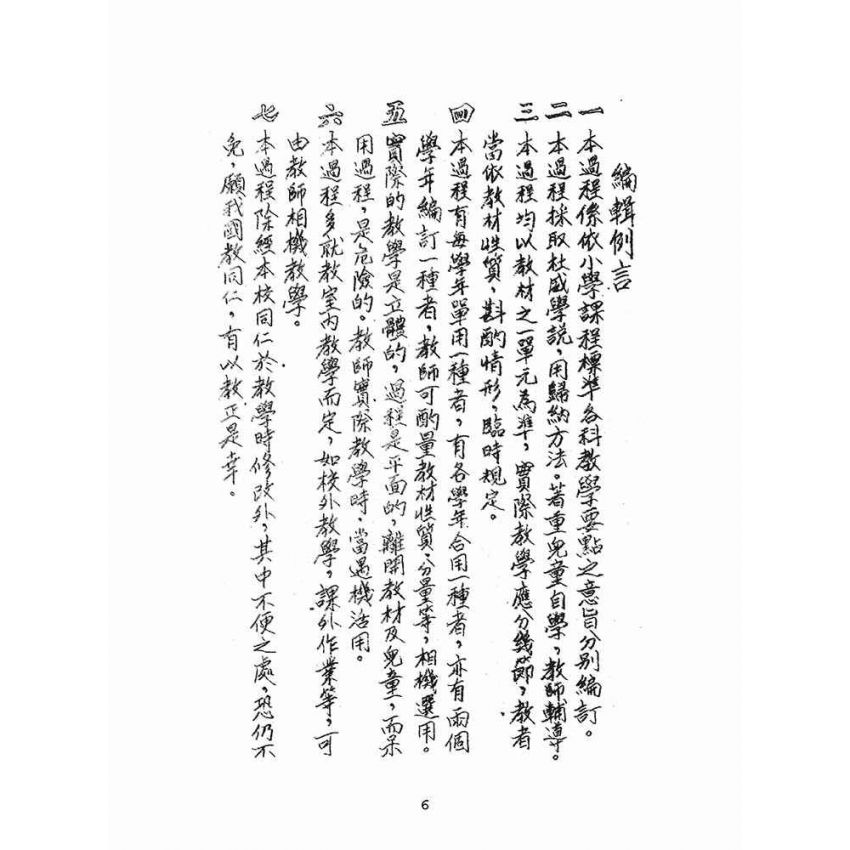 編輯例言
一 本過程係依小學課程標準各科教學要點之意旨分別編訂。
二 本過程採取杜威學說，用歸納方法。著重兒童自學，教師輔導。
三 本過程均以教材之一單元為準，實際教學應分幾節，教者
當依教材性質，斟酌情形，臨時規定。
四 本過程有每學年單用一種者，有各學年合用一種者，亦有兩個
學年編訂一種者，教師可酌量教材性質、分量等，相機選用。
五 實際的教學是立體的，過程是平面的，離開教材及兒童，而呆
用過程，是危險的。教師實際教學時，當遇機活用。
六 本過程多就教室內教學而定，如校外教學，課外作業等，可
由教師相機教學。
七 本過程除經本校同仁於教學時修改外，其中不便之處，恐仍不
免，願我國教同仁，有以教正是幸。
6